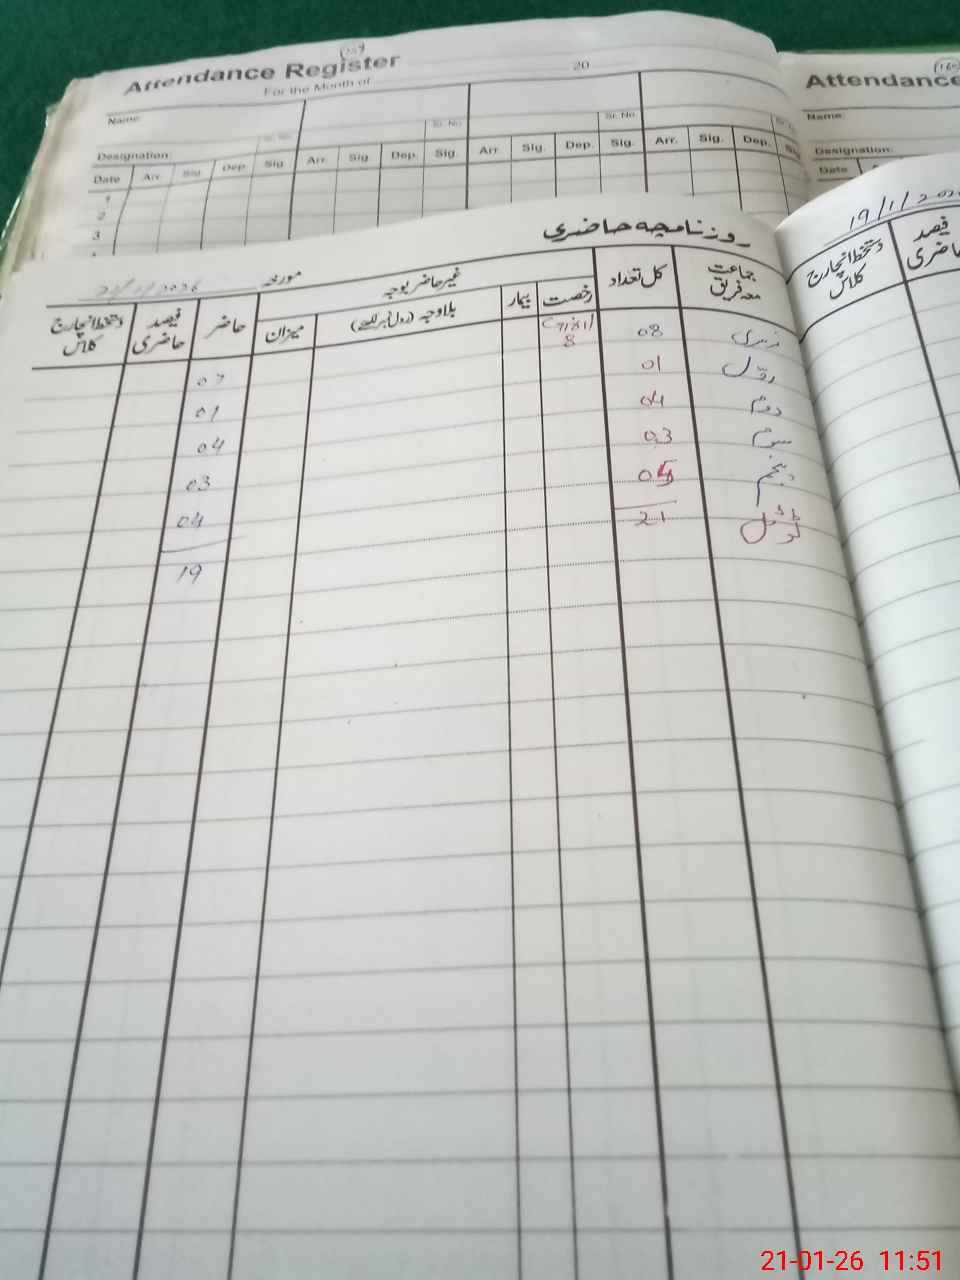 Attendance Register
For the Month of 20
Name:
Sr. No. Sr. No. Sr. No.
Designation:
Date Arr. Sig. Dep. Sig. Arr. Sig. Dep. Sig. Arr. Sig. Dep. Sig. Arr. Sig. Dep. Sig.
1
2
3
Attendance
Name:
Designation:
Date
19/1/202
فیصد حاضری
دستخط انچارج کلاس
روزنامچہ حاضری
مورخہ 21/1/2026
جماعت معہ فریق
کل تعداد
غیر حاضر بوجہ
رخصت
بیمار
بلاوجہ (رول نمبر لکھیے)
میزان
حاضر
فیصد حاضری
دستخط انچارج کلاس
نرسری 08 8 07
اول 01 01
دوم 04 04
سوم 03 03
پنجم 05 04
ٹوٹل 21 19
21-01-26 11:51